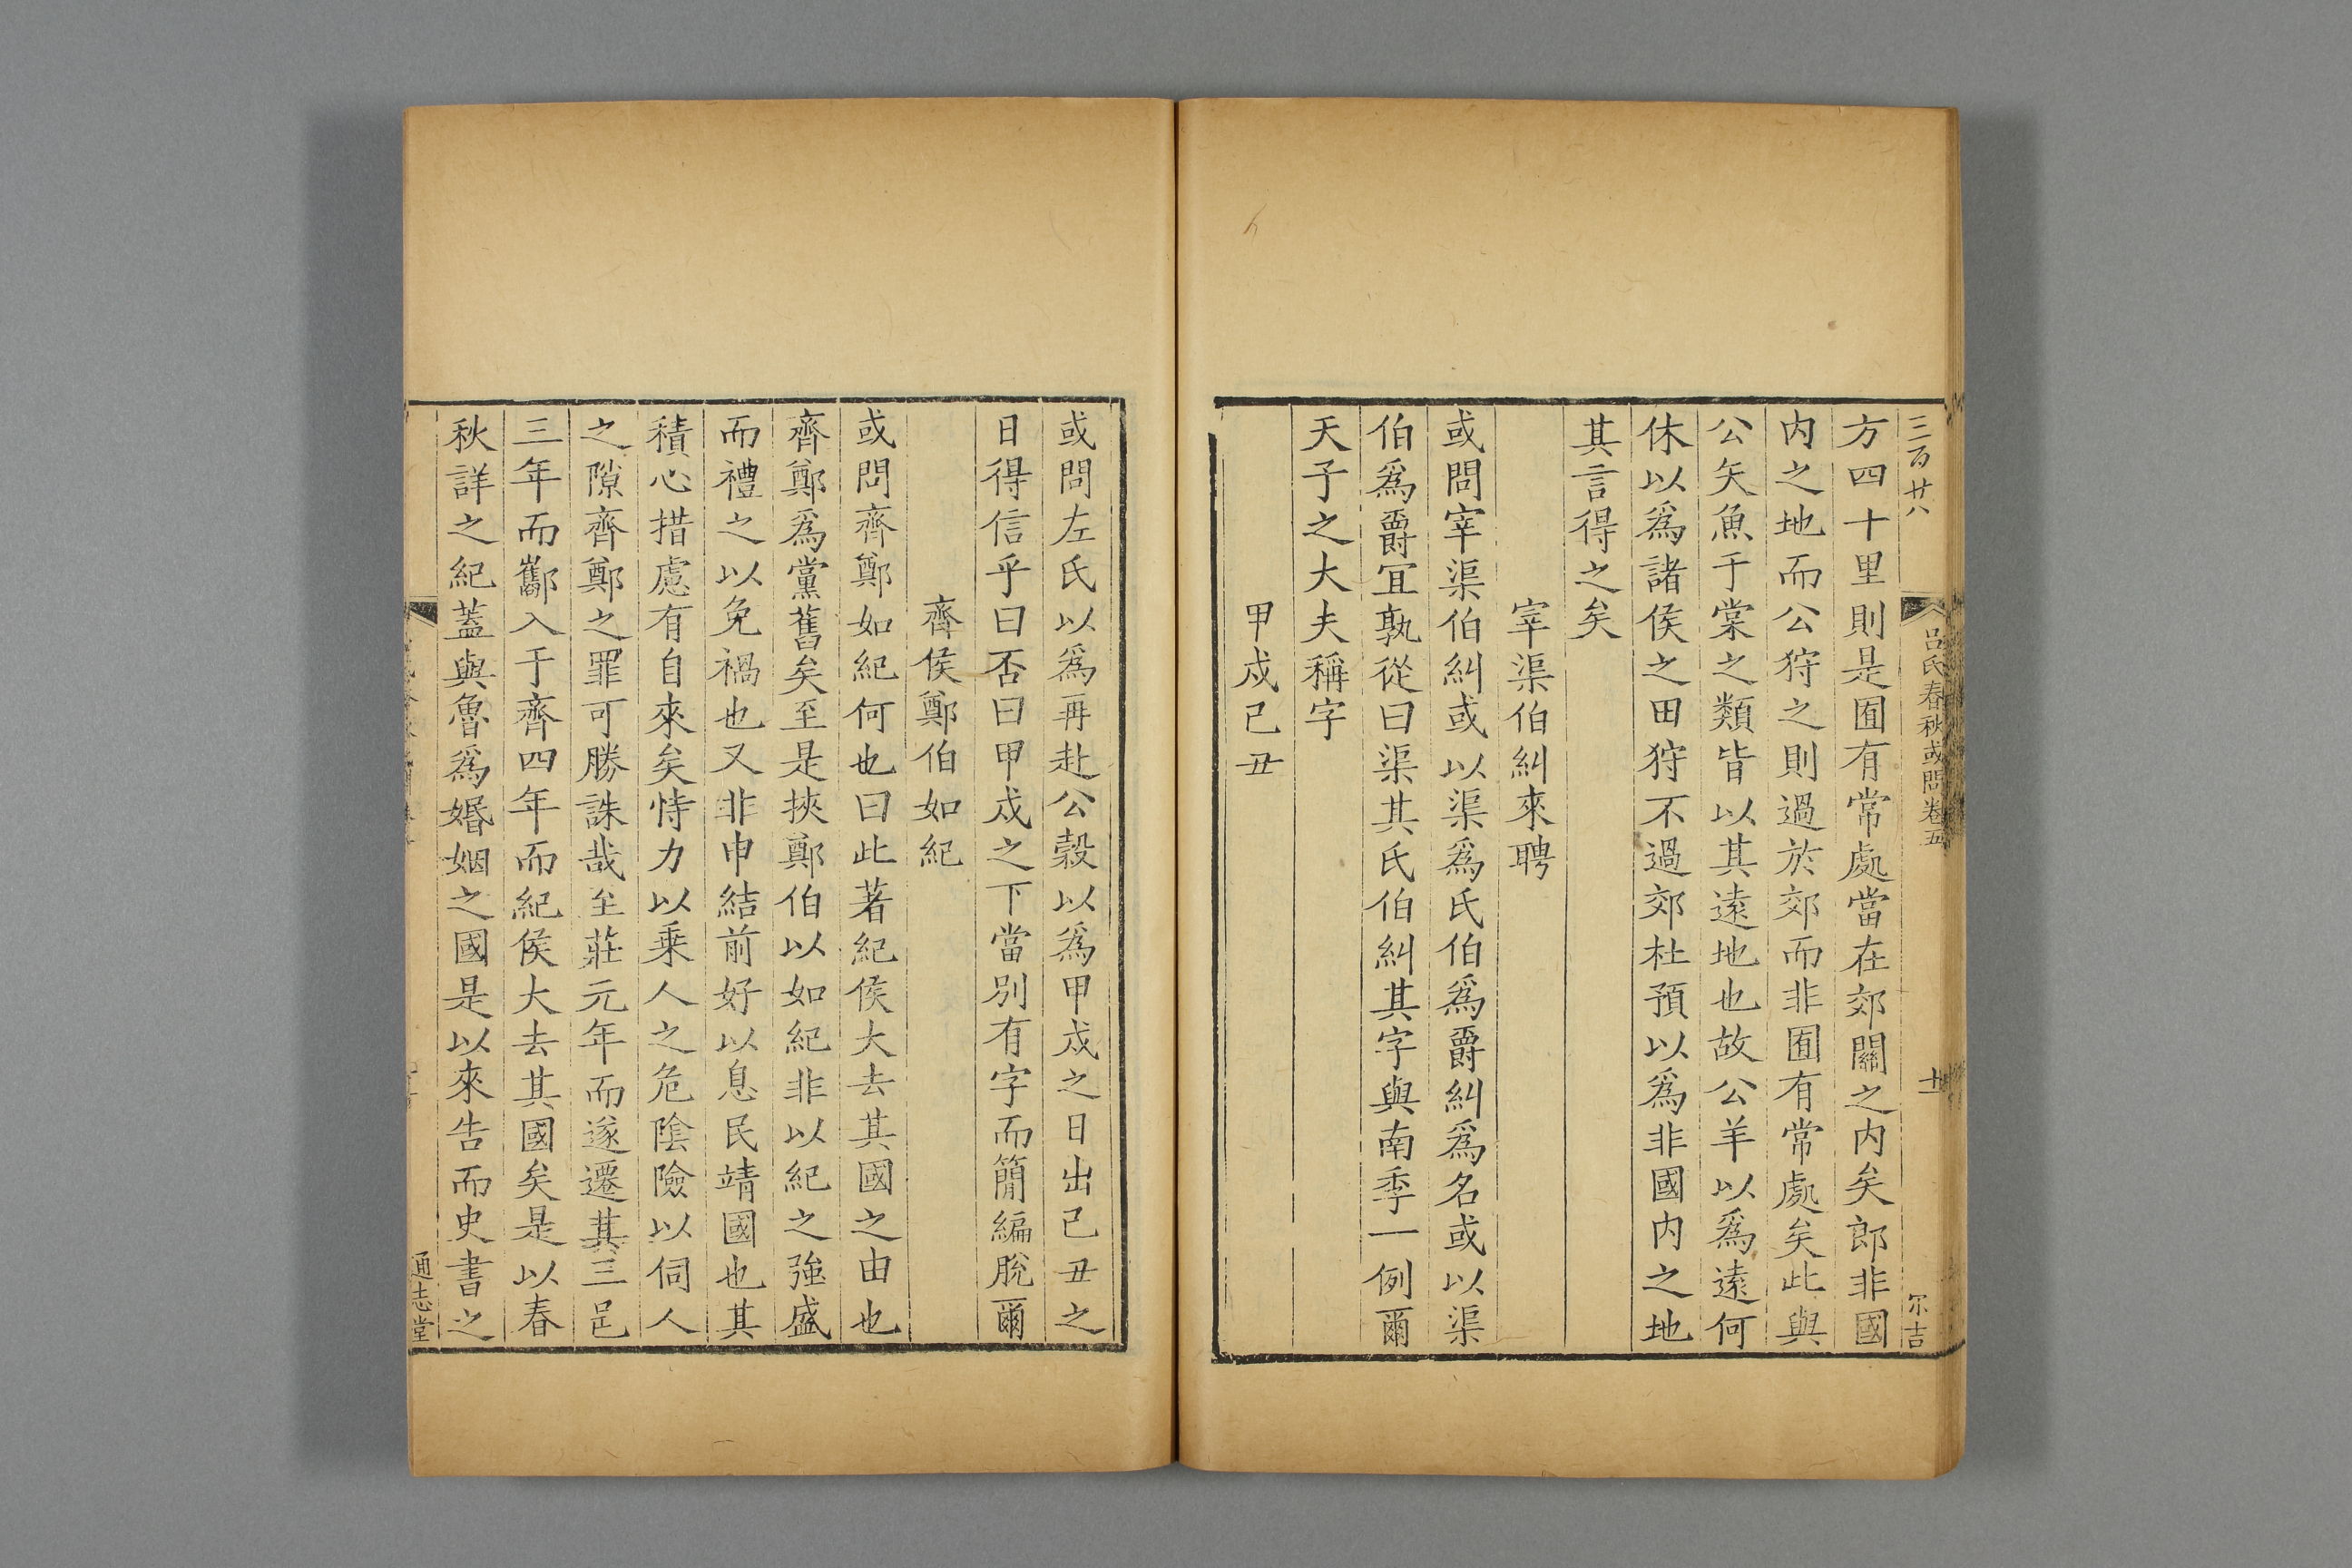 三百廿八
呂氏春秋或問卷五
十一
尔吉
方四十里則是囿有常處當在郊關之內矣郎非國
內之地而公狩之則過於郊而非囿有常處矣此與
公矢魚于棠之類皆以其遠地也故公羊以爲遠何
休以爲諸侯之田狩不過郊杜預以爲非國內之地
其言得之矣
宰渠伯糾來聘
或問宰渠伯糾或以渠爲氏伯爲爵糾爲名或以渠
伯爲爵冝孰從曰渠其氏伯糾其字與南季一例爾
天子之大夫稱字
甲戍己丑
或問左氏以爲再赴公穀以爲甲戍之日出己丑之
日得信乎曰否曰甲戍之下當別有字而簡編脫爾
齊侯鄭伯如紀
或問齊鄭如紀何也曰此著紀侯大去其國之由也
齊鄭爲黨舊矣至是挾鄭伯以如紀非以紀之強盛
而禮之以免禍也又非申結前好以息民靖國也其
積心措慮有自來矣恃力以乗人之危隂險以伺人
之隙齊鄭之罪可勝誅哉至莊元年而遂遷其三邑
三年而酅入于齊四年而紀侯大去其國矣是以春
秋詳之紀蓋與魯爲婚姻之國是以來告而史書之
通志堂